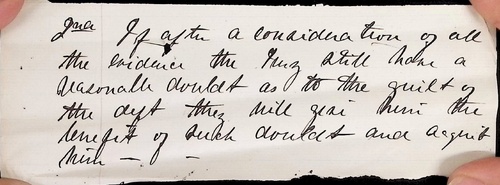 2nd If after a consideration of all
the evidence the Jury still have a
reasonable doubt as to the guilt of
the deft they will give him the
benefit of such doubt and acquit
him — —